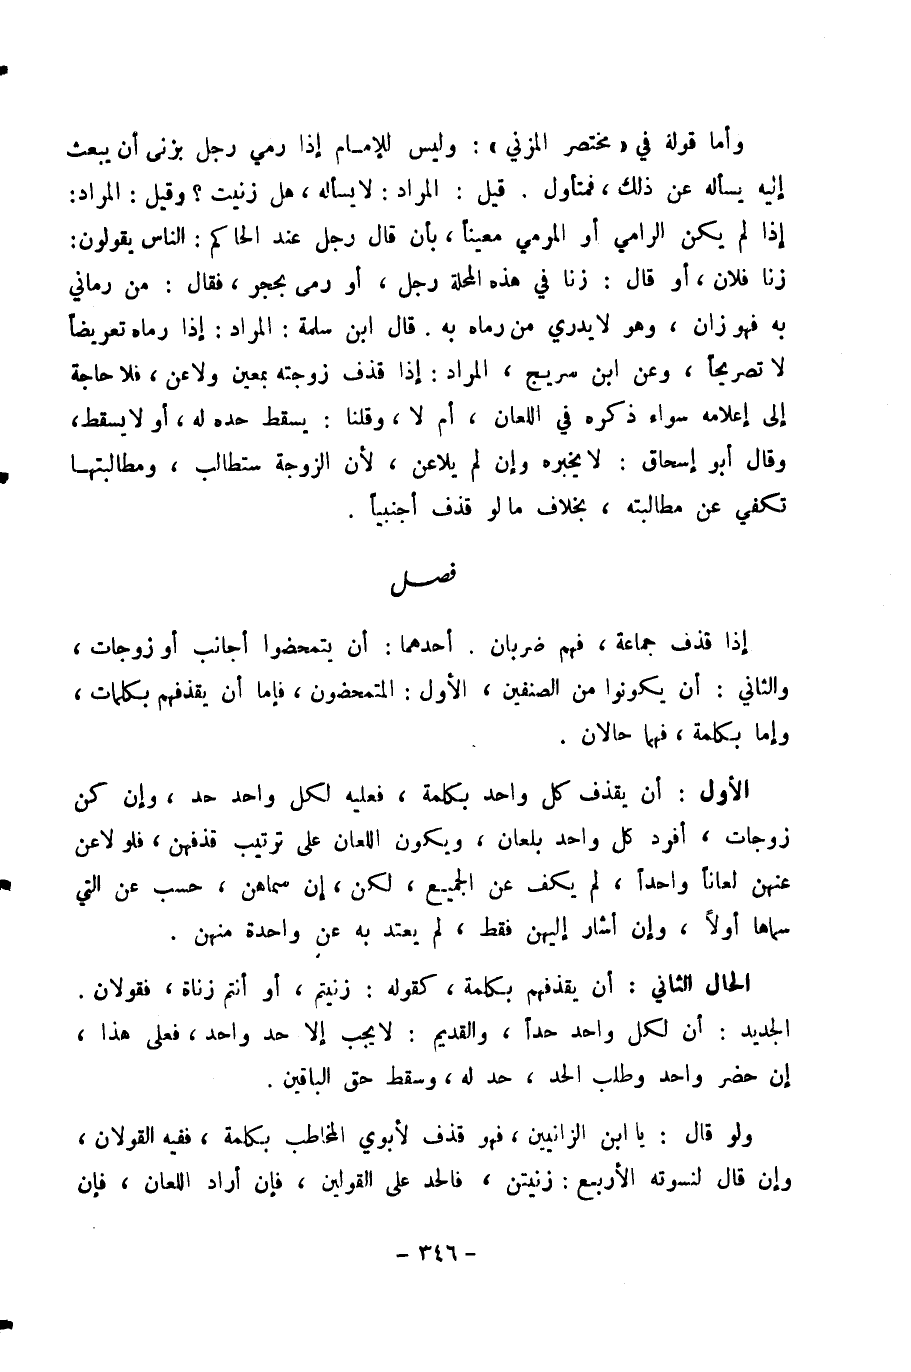 وأما قوله في « مختصر المزني » : وليس للإمـام إذا رمي رجل بزنى أن يبعث
إليه يسأله عن ذلك ، فمتأول . قيل : المراد : لا يسأله ، هل زنيت ؟ وقيل : المراد :
إذا لم يكن الرامي أو المرمي معيناً ، بأن قال رجل عند الحاكم : الناس يقولون :
زنا فلان ، أو قال : زنا في هذه المحلة رجل ، أو رمى بحجر ، فقال : من رماني
به فهو زان ، وهو لا يدري من رماه به . قال ابن سلمة : المراد : إذا رماه تعريضاً
لا تصريحاً ، وعن ابن سريج ، المراد : إذا قذف زوجته بمعين ولاعن ، فلا حاجة
إلى إعلامه سواء ذكره في اللعان ، أم لا ، وقلنا : يسقط حده له ، أو لا يسقط ،
وقال أبو إسحاق : لا يخبره وإن لم يلاعن ، لأن الزوجة ستطالب ، ومطالبتهـا
تكفي عن مطالبته ، بخلاف ما لو قذف أجنبياً .
فصـل
إذا قذف جماعة ، فهم ضربان . أحدهما : أن يتمحضوا أجانب أو زوجات ،
والثاني : أن يكونوا من الصنفين ، الأول : المتمحضون ، فإما أن يقذفهم بكلمات ،
وإما بكلمة ، فهما حالان .
الأول : أن يقذف كل واحد بكلمة ، فعليه لكل واحد حد ، وإن كن
زوجات ، أفرد كل واحد بلعان ، ويكون اللعان على ترتيب قذفهن ، فلو لاعن
عنهن لعاناً واحداً ، لم يكف عن الجميع ، لكن ، إن سماهن ، حسب عن التي
سماها أولاً ، وإن أشار إليهن فقط ، لم يعتد به عن واحدة منهن .
الحال الثاني : أن يقذفهم بكلمة ، كقوله : زنيتم ، أو أنتم زناة ، فقولان .
الجديد : أن لكل واحد حداً ، والقديم : لا يجب إلا حد واحد ، فعلى هذا ،
إن حضر واحد وطلب الحد ، حد له ، وسقط حق الباقين .
ولو قال : يا ابن الزانيين ، فهو قذف لأبوي المخاطب بكلمة ، ففيه القولان ،
وإن قال لنسوته الأربع : زنيتن ، فالحد على القولين ، فإن أراد اللعان ، فإن
– ٣٤٦ –